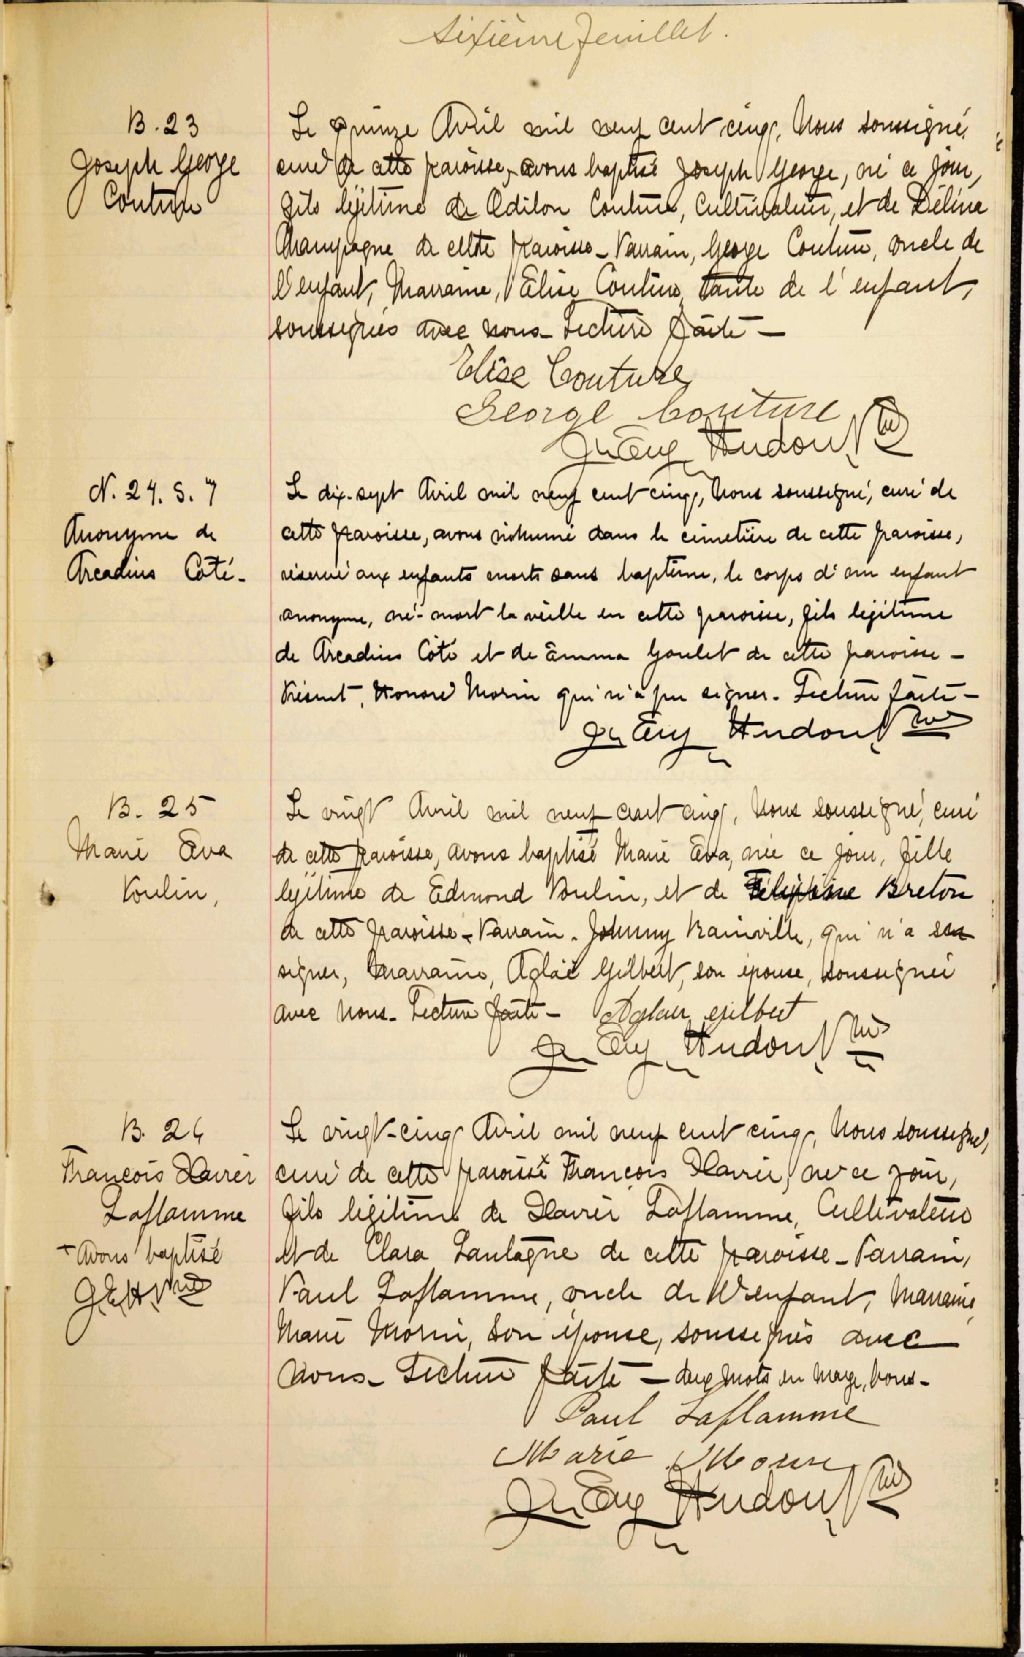 Sixième feuillet.
B. 23
Joseph George
Couture
Le quinze Avril mil neuf cent cinq, Nous soussigné,
curé de cette paroisse, avons baptisé Joseph George, né ce jour,
fils légitime de Odilon Couture, Cultivateur, et de Délina
Champagne de cette paroisse - Parrain, George Couture, oncle de
l'enfant, Marraine, Elise Couture, tante de l'enfant,
soussignés avec nous - Lecture faite -
Elise Couture
George Couture
Hudon
N. 24. S. 7
Anonyme de
Arcadius Côté -
Le dix-sept Avril mil neuf cent cinq, Nous soussigné, curé de
cette paroisse, avons inhumé dans le cimetière de cette paroisse,
réservé aux enfants morts sans baptême, le corps d'un enfant
anonyme, né-mort la veille en cette paroisse, fils légitime
de Arcadius Côté et de Emma Goulet de cette paroisse -
Présent, Honoré Morin qui n'a pu signer - Lecture faite -
Hudon
B. 25
Marie Eva
Poulin,
Le vingt Avril mil neuf cent cinq, Nous soussigné, curé
de cette paroisse, avons baptisé Marie Eva, née ce jour, fille
légitime de Edmond Poulin, et de Breton
de cette paroisse - Parrain - Johnny Rainville, qui n'a su
signer, Marraine, Aglaé Gilbert, son épouse, soussignée
avec nous - Lecture faite - Aglaé gilbert
Hudon
B. 26
François Xavier
Laflamme
+ avons baptisé
G.E.H.
Le vingt-cinq Avril mil neuf cent cinq, Nous soussigné,
curé de cette paroisse + François Xavier, né ce jour,
fils légitime de Xavier Laflamme, Cultivateur
et de Clara Lantagne de cette paroisse - Parrain,
Paul Laflamme, oncle de l'enfant, Marraine,
Marie Morin, son épouse, soussignés avec
nous - Lecture faite - deux mots en marge, bons -
Paul Laflamme
Marie Morin
Hudon